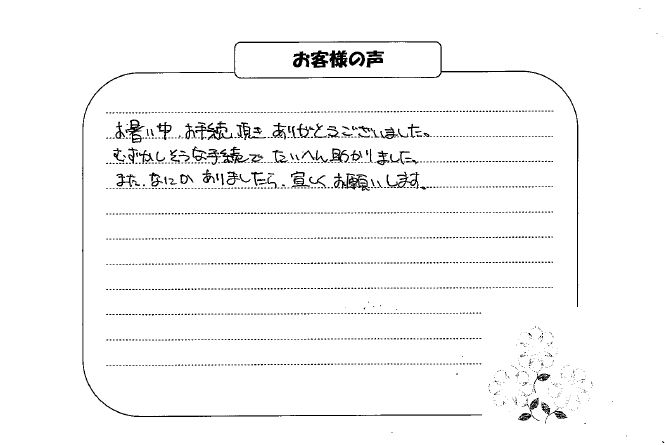 お客様の声
お暑い中、お手続頂き ありがとうございました。
むずかしそうな手続で たいへん助かりました。
また、なにか ありましたら、宜しく お願いします。